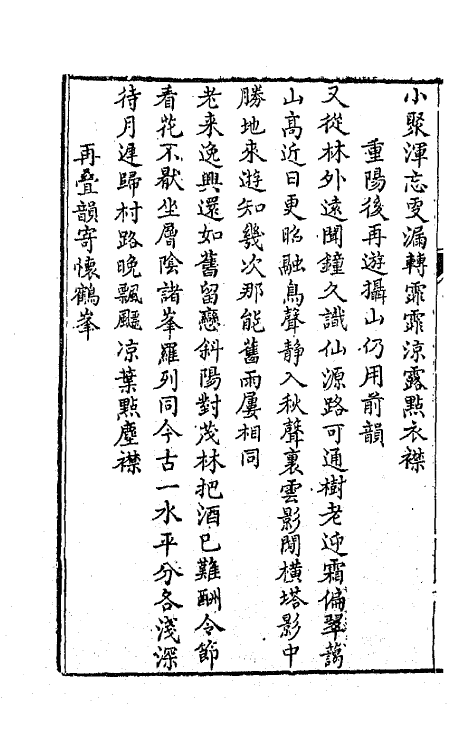 小聚渾忘更漏轉霏霏涼露點衣襟
重陽後再遊攝山仍用前韻
又從林外遠聞鐘久識仙源路可通樹老迎霜偏翠藹
山高近日更昭融鳥聲靜入秋聲裏雲影閒橫塔影中
勝地來遊知幾次那能舊雨屢相同
老来逸興還如舊留戀斜陽對茂林把酒已難酬令節
看花不厭坐層陰諸峯羅列同今古一水平分各淺深
待月遲歸村路晚飄飄凉葉點塵襟
再疊韻寄懷鶴峯